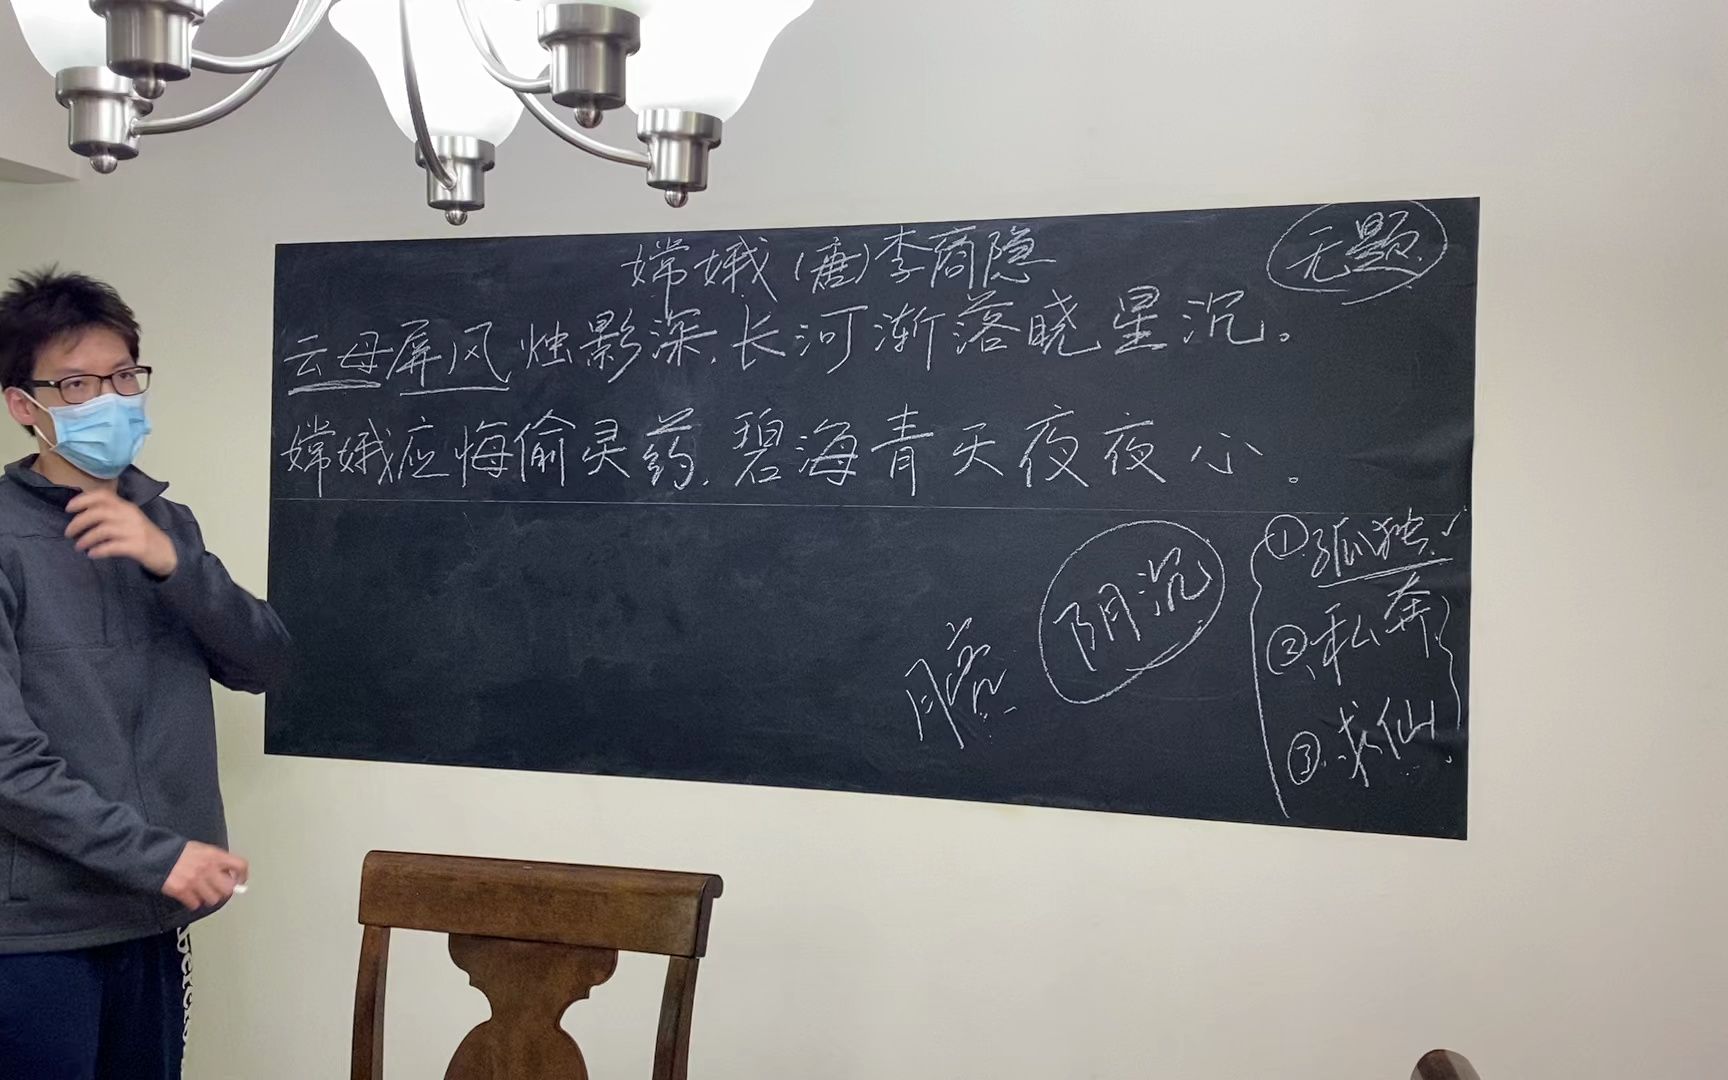 无题
嫦娥(唐)李商隐
云母屏风烛影深,长河渐落晓星沉。
嫦娥应悔偷灵药,碧海青天夜夜心。
①孤独✓
阴沉
②私奔
③求仙
Aberc